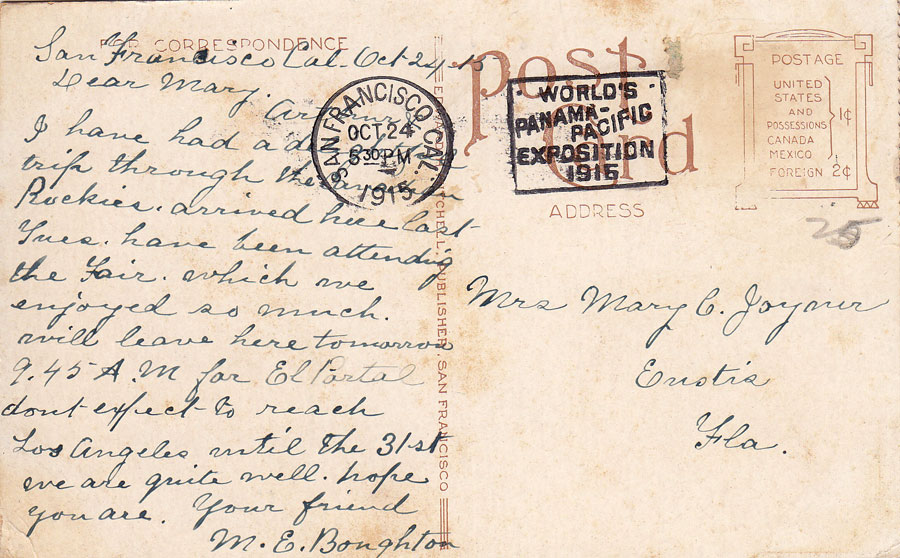 FOR CORRESPONDENCE
San Francisco Cal. Oct 24-15
Dear Mary.
I have had a
trip through the
Rockies. arrived here last
Tues. have been attending
the Fair. which we
enjoyed so much.
will leave here tomorrow
9.45 A.M for El Portal
dont expect to reach
Los Angeles until the 31st
we are quite well. hope
you are. Your friend
M. E. Boughton
SAN FRANCISCO CAL.
OCT. 24
5 30 PM
1915
MITCHELL, PUBLISHER, SAN FRANCISCO
Post
Card
WORLD'S
PANAMA-
PACIFIC
EXPOSITION
1915
ADDRESS
POSTAGE
UNITED
STATES
AND
POSSESSIONS
CANADA
MEXICO
1¢
FOREIGN 2¢
25
Mrs Mary C. Joyner
Eustis
Fla.